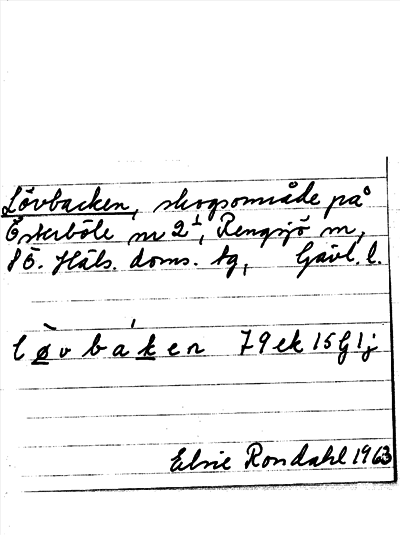 Lövbacken, skogsområde på
Österböle nr 2¹, Rengsjö sn,
SÖ. Häls. doms. tg, Gävl. l.
lø̀vbáken 79ek15G1j
Elsie Rondahl 1963